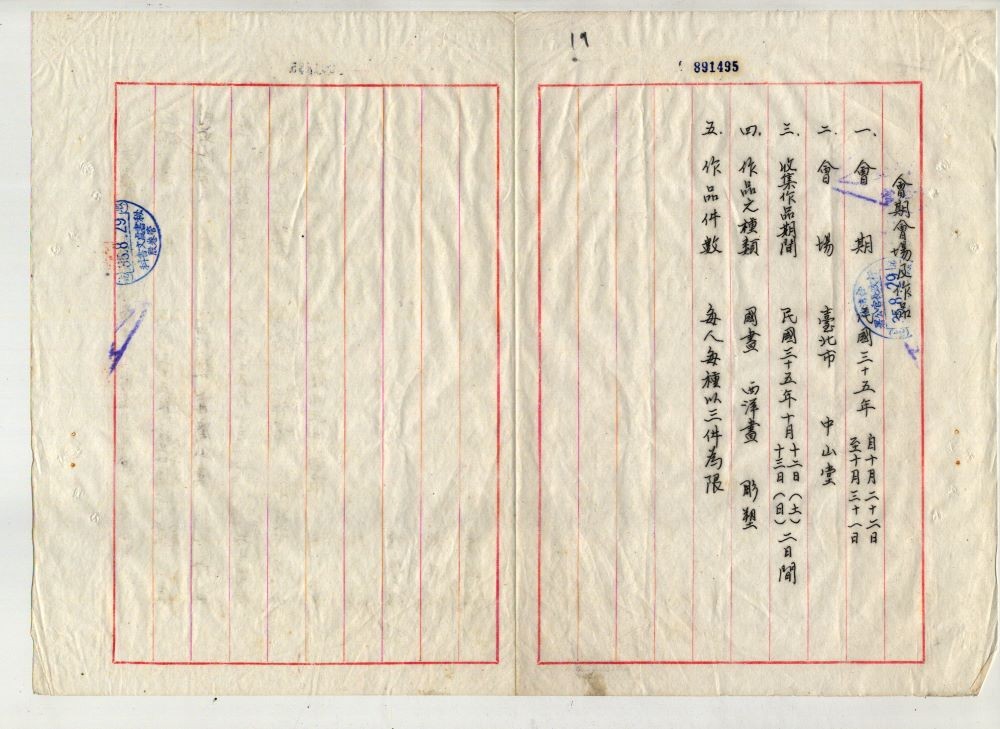 19
891495
會期會場及作品
一. 會期 民國三十五年 自十月二十二日 至十月三十一日
二. 會場 臺北市 中山堂
三. 收集作品期間 民國三十五年十月 十二日(土) 十三日(日) 二日間
四. 作品之種類 國畫 西洋畫 彫塑
五. 作品件數 每人每種以三件為限
35.8.29
35.8.29